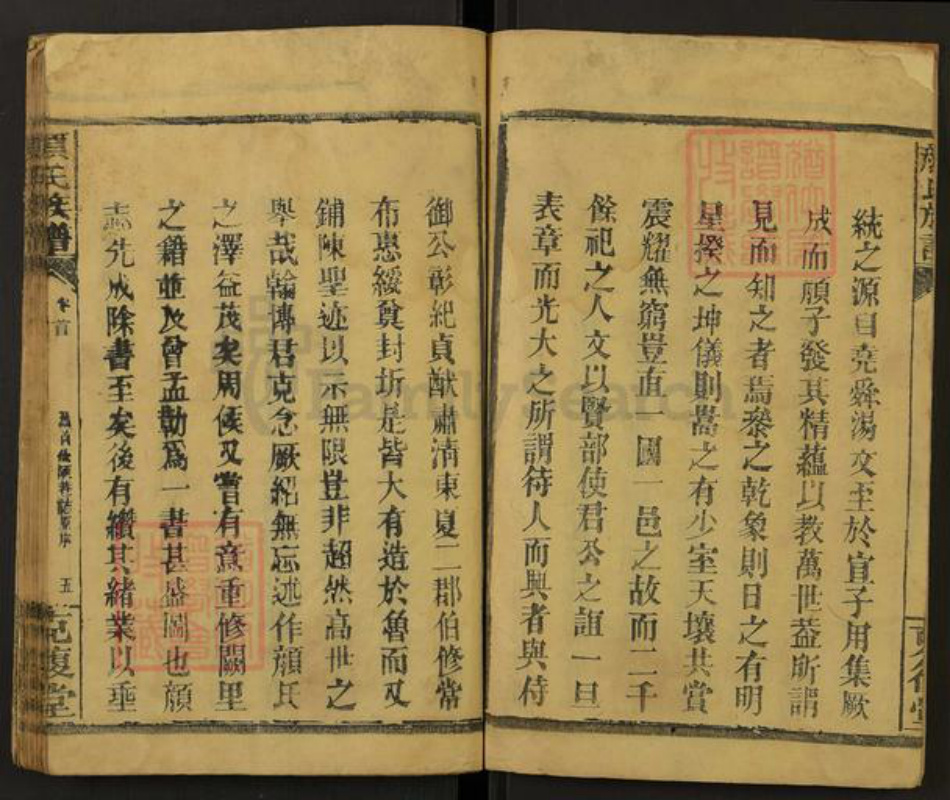 統之源自堯舜湯文至於宣子用集厥
成而顔子發其精蘊以教萬世葢所謂
見而知之者焉叅之乾象則日之有明
星揆之坤儀則嵩之有少室天壤共賞
震耀無窮豈直一國一邑之故而二千
餘祀之人文以賢部使君公之誼一旦
表章而光大之所謂待人而興者與侍
御公彰紀貞猷肅淸東夏二郡伯修常
布惠綏奠封圻是皆大有造於魯而又
鋪陳聖迹以示無限豈非超然高世之
舉哉翰博君克念厥紹無忘述作顔氏
之澤益茂矣周侯又嘗有意重修闕里
之籍並及曾孟勒爲一書甚盛圖也顔
志先成除書至矣後有纘其緒業以垂
顔氏族譜
卷首
序
五
克復堂
FamilySearch